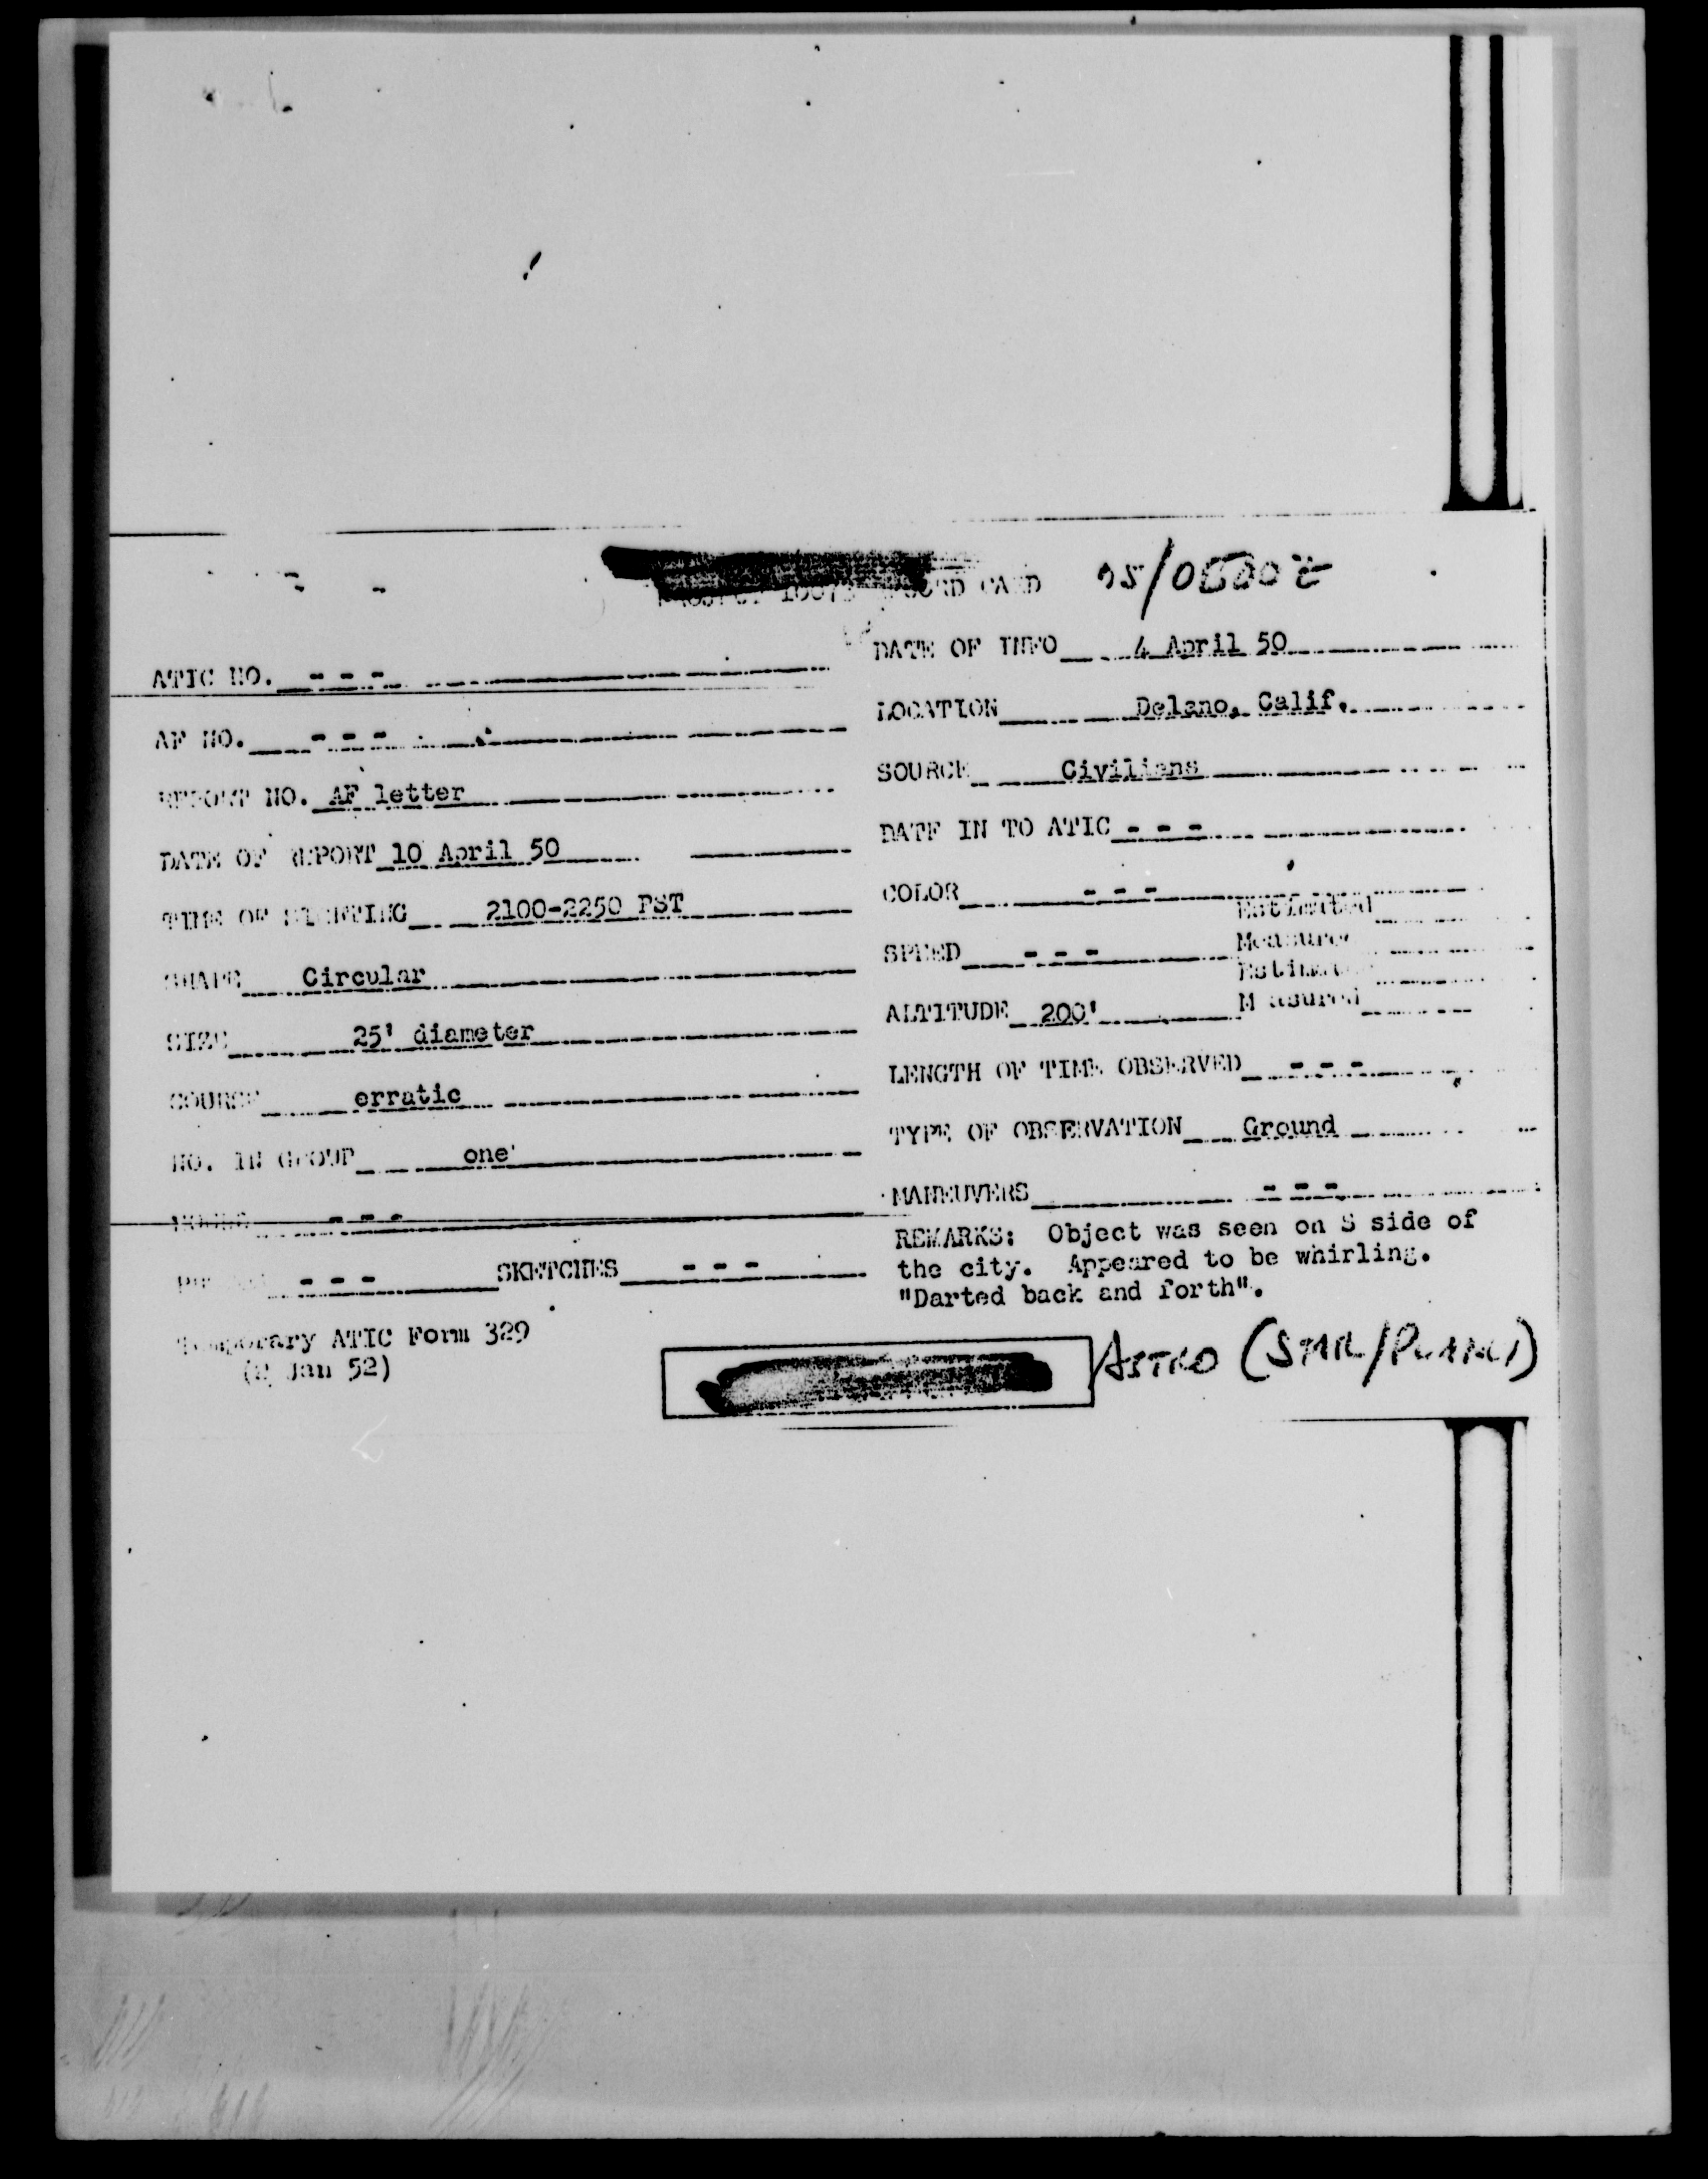 CARD 05/0500Z
ATIC NO. - - -
AF NO. - - -
REPORT NO. AF letter
DATE OF REPORT 10 April 50
TIME OF SIGHTING 2100-2250 PST
SHAPE Circular
SIZE 25' diameter
COURSE erratic
NO. IN GROUP one
- - -
- - - SKETCHES - - -
Temporary ATIC Form 329
(2 Jan 52)
DATE OF INFO 4 April 50
LOCATION Delano, Calif.
SOURCE Civilians
DATE IN TO ATIC - - -
COLOR - - -
Estimated
SPEED - - - Measured
Estimated
ALTITUDE 200' Measured
LENGTH OF TIME OBSERVED - - -
TYPE OF OBSERVATION Ground
MANEUVERS - - -
REMARKS: Object was seen on S side of
the city. Appeared to be whirling.
"Darted back and forth".
ASTRO (STAR/PLANET)